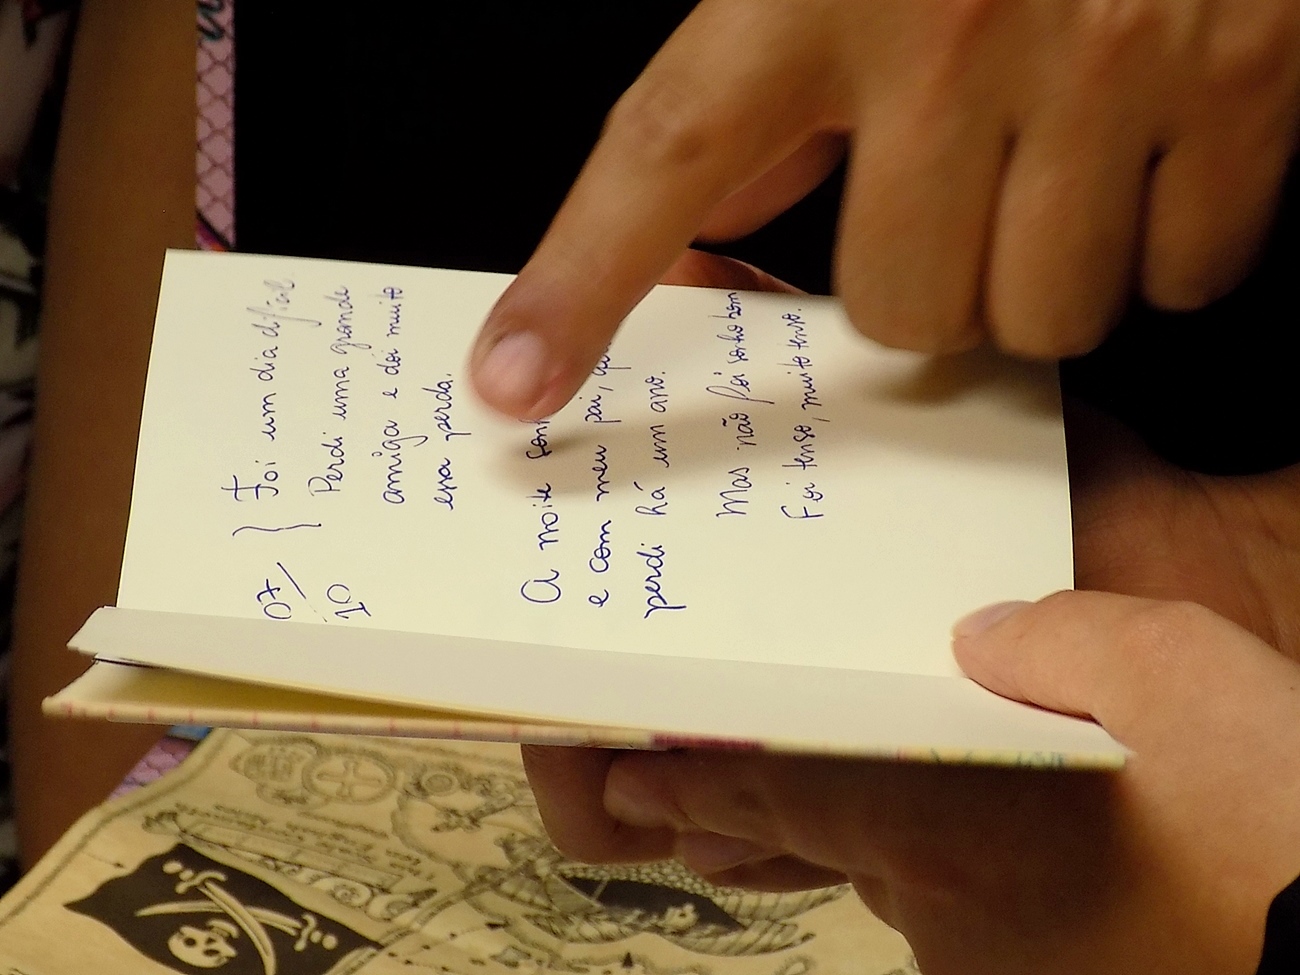 07/10 } Foi um dia difícil.
Perdi uma grande
amiga e dói muito
essa perda.
A noite
e com meu pai,
perdi há um ano.
Mas não foi sonho bom
Foi tenso, muito tenso.